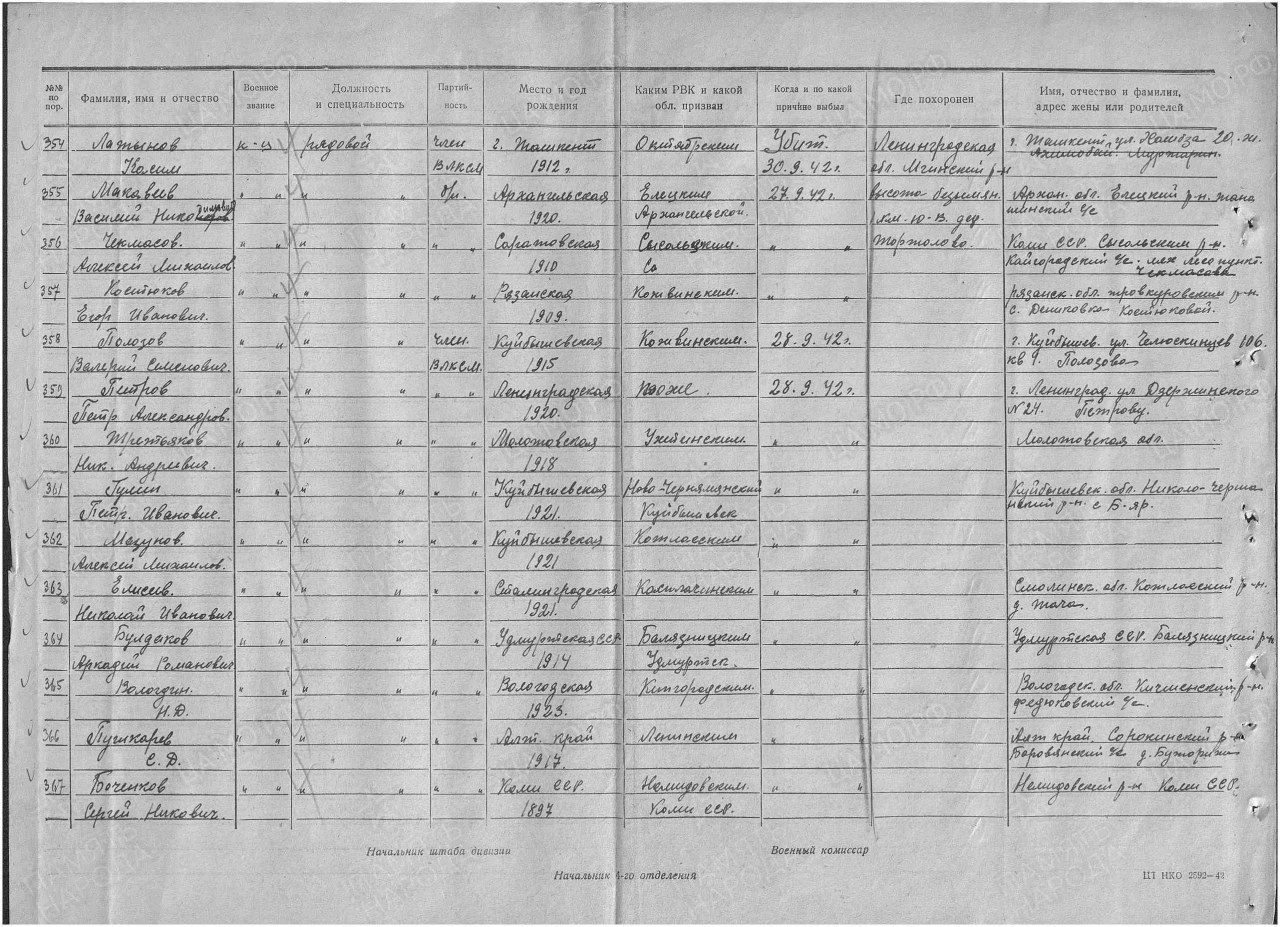 №№ по пор. Фамилия, имя и отчество Военное звание Должность и специальность Партийность Место и год рождения Каким РВК и какой обл. призван Когда и по какой причине выбыл Где похоронен Имя, отчество и фамилия, адрес жены или родителей
354 Латынов к-ц рядовой член г. Ташкент Октябрьским Убит. Ленинградская г. Ташкент, ул. 20
Касим ВЛКСМ 1912 г. 30.9.42г. обл. Мгинский р-н
355 Макавеев " " " " б/п. Архангельская Елецким 27.9.42г. высота безымян. Архан. обл. Елецкий р-н.
Василий 1920. Архангельской. 1 км. Ю-В. дер. с/с
356 Чекмасов. " " " " " " Саратовская Сысольским. " " Тортолово. Коми ССР. Сысольским р-н.
Алексей Михайлов. 1910 Кайгородский с/с. лесопункт. Чекмасова
357 Костюков " " " " " " Рязанская Кожвинским. " " рязанск. обл. р-н
Егор Иванович. 1909. с. Костюковой.
358 Полозов " " " " член. Куйбышевская Кожвинским. 28.9.42г. г. Куйбышев. ул. Челюскинцев 106.
Валерий Семенович. ВЛКСМ. 1915 кв 9. Полозова
359 Петров " " " " " " Ленинградская тоже. 28.9.42г. г. Ленинград. ул Дзержинского
Петр Александров. 1920. N 24. Петрову.
360 Третьяков " " " " " " Молотовская Ухтинским. " " Молотовская обл.
Ник. Андреевич. 1918
361 Гулин " " " " " " Куйбышевская Ново-Чернямянский " " Куйбышевск. обл. Николо-Черем
Петр. Иванович. 1921. Куйбышевск р-н. с Б-яр.
362 Мазунов. " " " " " " Куйбышевская Котласским " "
Алексей Михайлов. 1921
363 Елисев. " " " " " " Сталинградская " " Смолинск. обл. Котласский р-н.
Николай Иванович. 1921. д. тача.
364 Булдаков " " " " " " Удмуртская ССР. Балязницким " " Удмуртская ССР. Балязницкий р-н
Аркадий Романович 1914 Удмуртск.
365 Вологдин. " " " " " " Вологодская Кичгородским. " " Вологодск. обл. Кичменский р-н.
Н.Д. 1923. федюковский с/с.
366 Пушкарев " " " " " " Алт. край Ленинским " " Алт край. Сорокинский р-н
С.Д. 1917. Боровянский с/с д.
367 Боченков " " " " " " Коми ССР. Немидовским. " " Немидовский р-н Коми ССР.
Сергей Никович. 1897 Коми ССР.
Начальник штаба дивизии Военный комиссар
Начальник 4-го отделения ЦТ НКО 2592—42